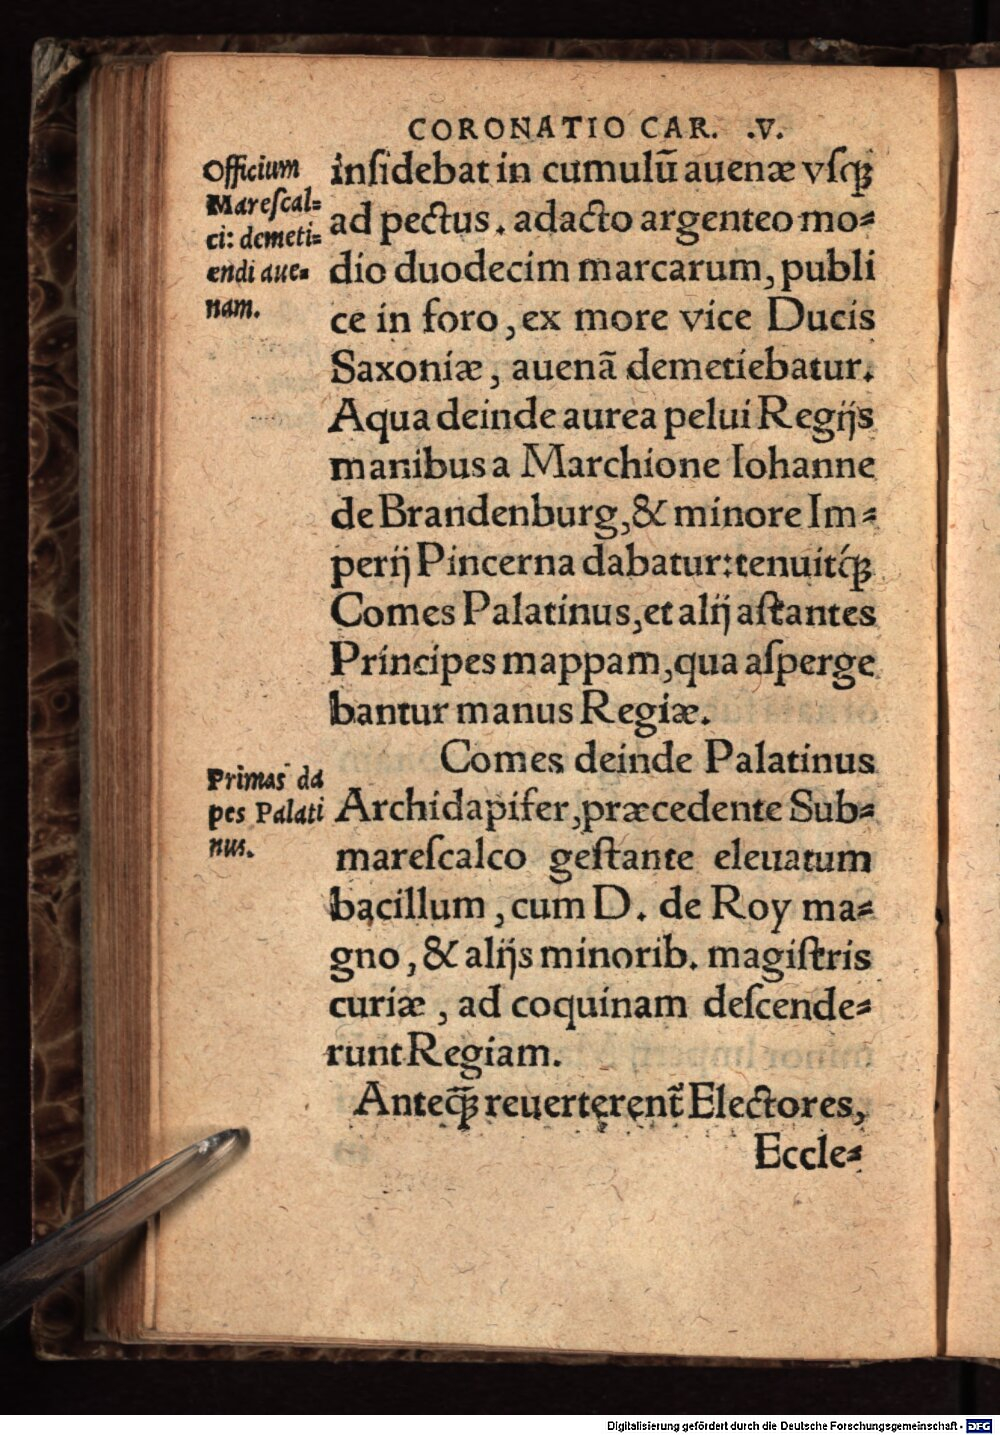 CORONATIO CAR. .V.
Officium
Mareſcal⸗
ci: demeti⸗
endi aue⸗
nam.
inſidebat in cumulū auenæ vſqꝫ
ad pectus. adacto argenteo mo⸗
dio duodecim marcarum, publi
ce in foro, ex more vice Ducis
Saxoniæ, auenã demetiebatur.
Aqua deinde aurea pelui Regijs
manibus a Marchione Iohanne
de Brandenburg, & minore Im⸗
perij Pincerna dabatur: tenuitq́ꝫ
Comes Palatinus, et alij aſtantes
Principes mappam, qua aſperge
bantur manus Regiæ.
Primas da
pes Palati
nus.
Comes deinde Palatinus
Archidapifer, præcedente Sub⸗
mareſcalco geſtante eleuatum
bacillum, cum D. de Roy ma⸗
gno, & alijs minorib. magiſtris
curiæ, ad coquinam deſcende⸗
runt Regiam.
Anteq̃ꝫ reuerterent̃ Electores,
Eccle⸗
Digitalisierung gefördert durch die Deutsche Forschungsgemeinschaft - DFG